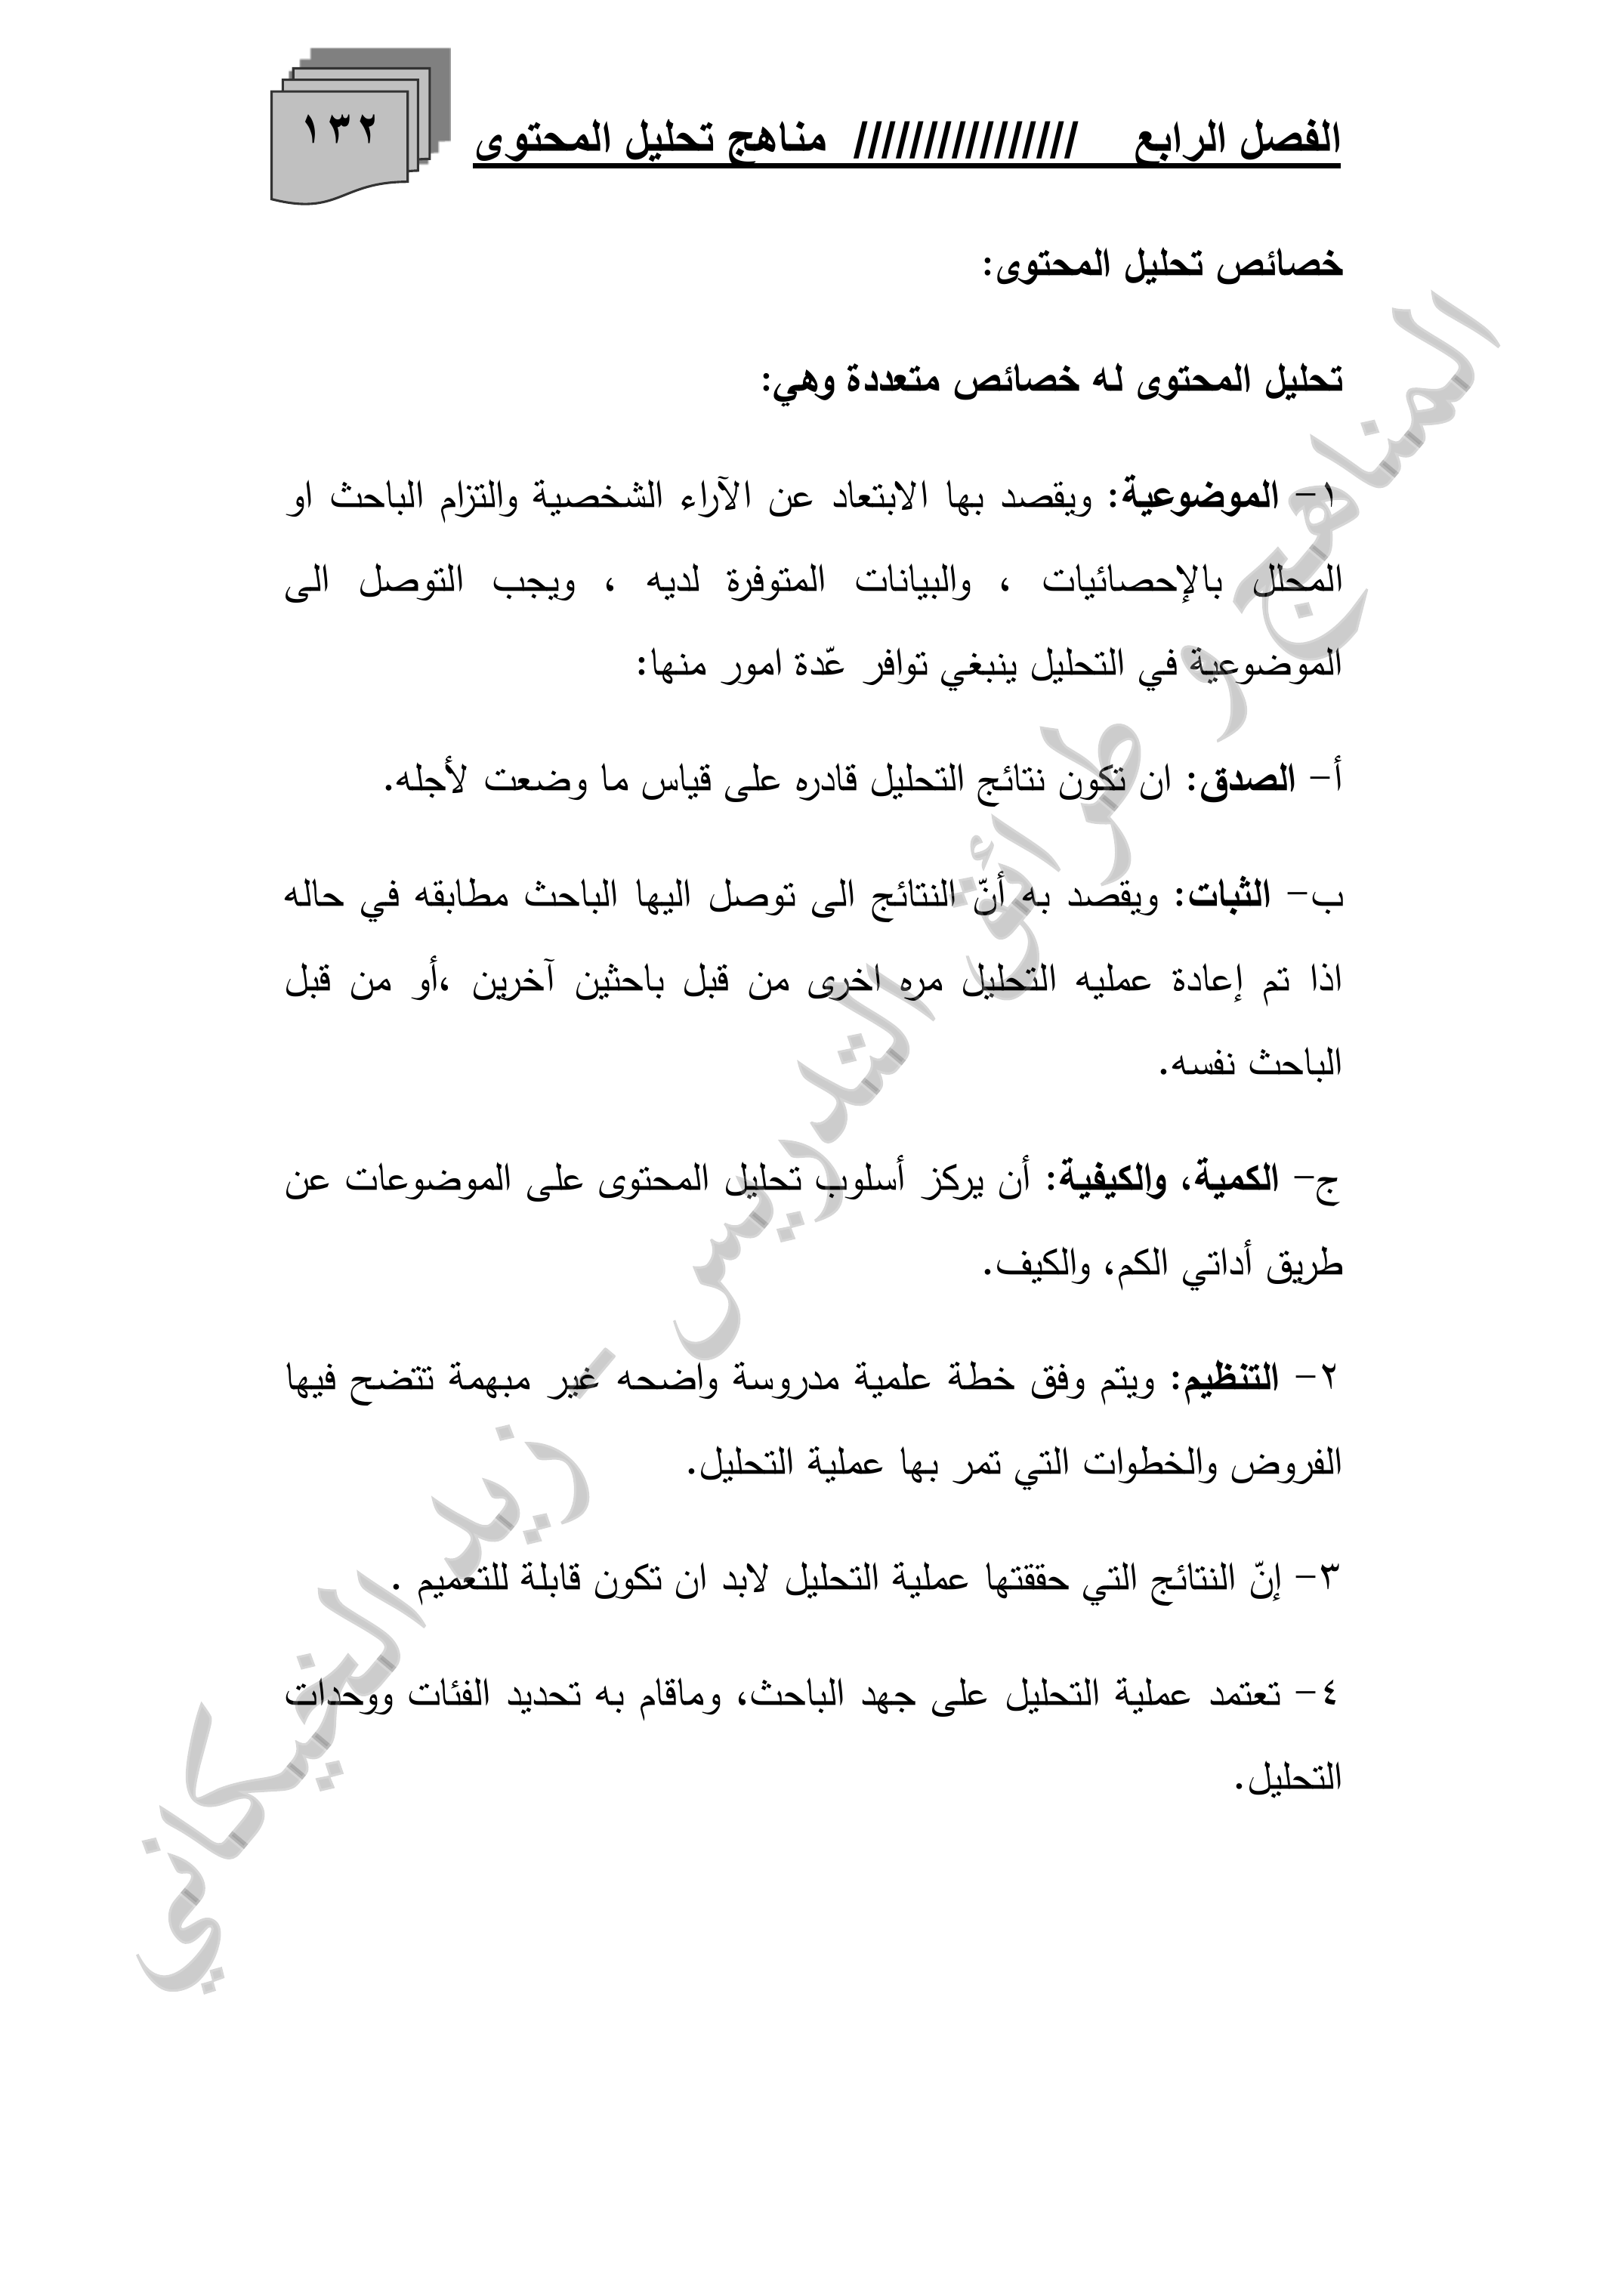 الفصل الرابع //////////////// مناهج تحليل المحتوى
١٣٢
خصائص تحليل المحتوى:
تحليل المحتوى له خصائص متعددة وهي:
١- الموضوعية: ويقصد بها الابتعاد عن الآراء الشخصية والتزام الباحث او
المحلل بالإحصائيات ، والبيانات المتوفرة لديه ، ويجب التوصل الى
الموضوعية في التحليل ينبغي توافر عّدة امور منها:
أ- الصدق: ان تكون نتائج التحليل قادره على قياس ما وضعت لأجله.
ب- الثبات: ويقصد به أنّ النتائج الى توصل اليها الباحث مطابقه في حاله
اذا تم إعادة عمليه التحليل مره اخرى من قبل باحثين آخرين ،أو من قبل
الباحث نفسه.
ج- الكمية، والكيفية: أن يركز أسلوب تحليل المحتوى على الموضوعات عن
طريق أداتي الكم، والكيف.
٢- التنظيم: ويتم وفق خطة علمية مدروسة واضحه غير مبهمة تتضح فيها
الفروض والخطوات التي تمر بها عملية التحليل.
٣- إنّ النتائج التي حققتها عملية التحليل لابد ان تكون قابلة للتعميم .
٤- تعتمد عملية التحليل على جهد الباحث، وماقام به تحديد الفئات ووحدات
التحليل.
المناهج و طرائق التدريس - زيد الخيكاني